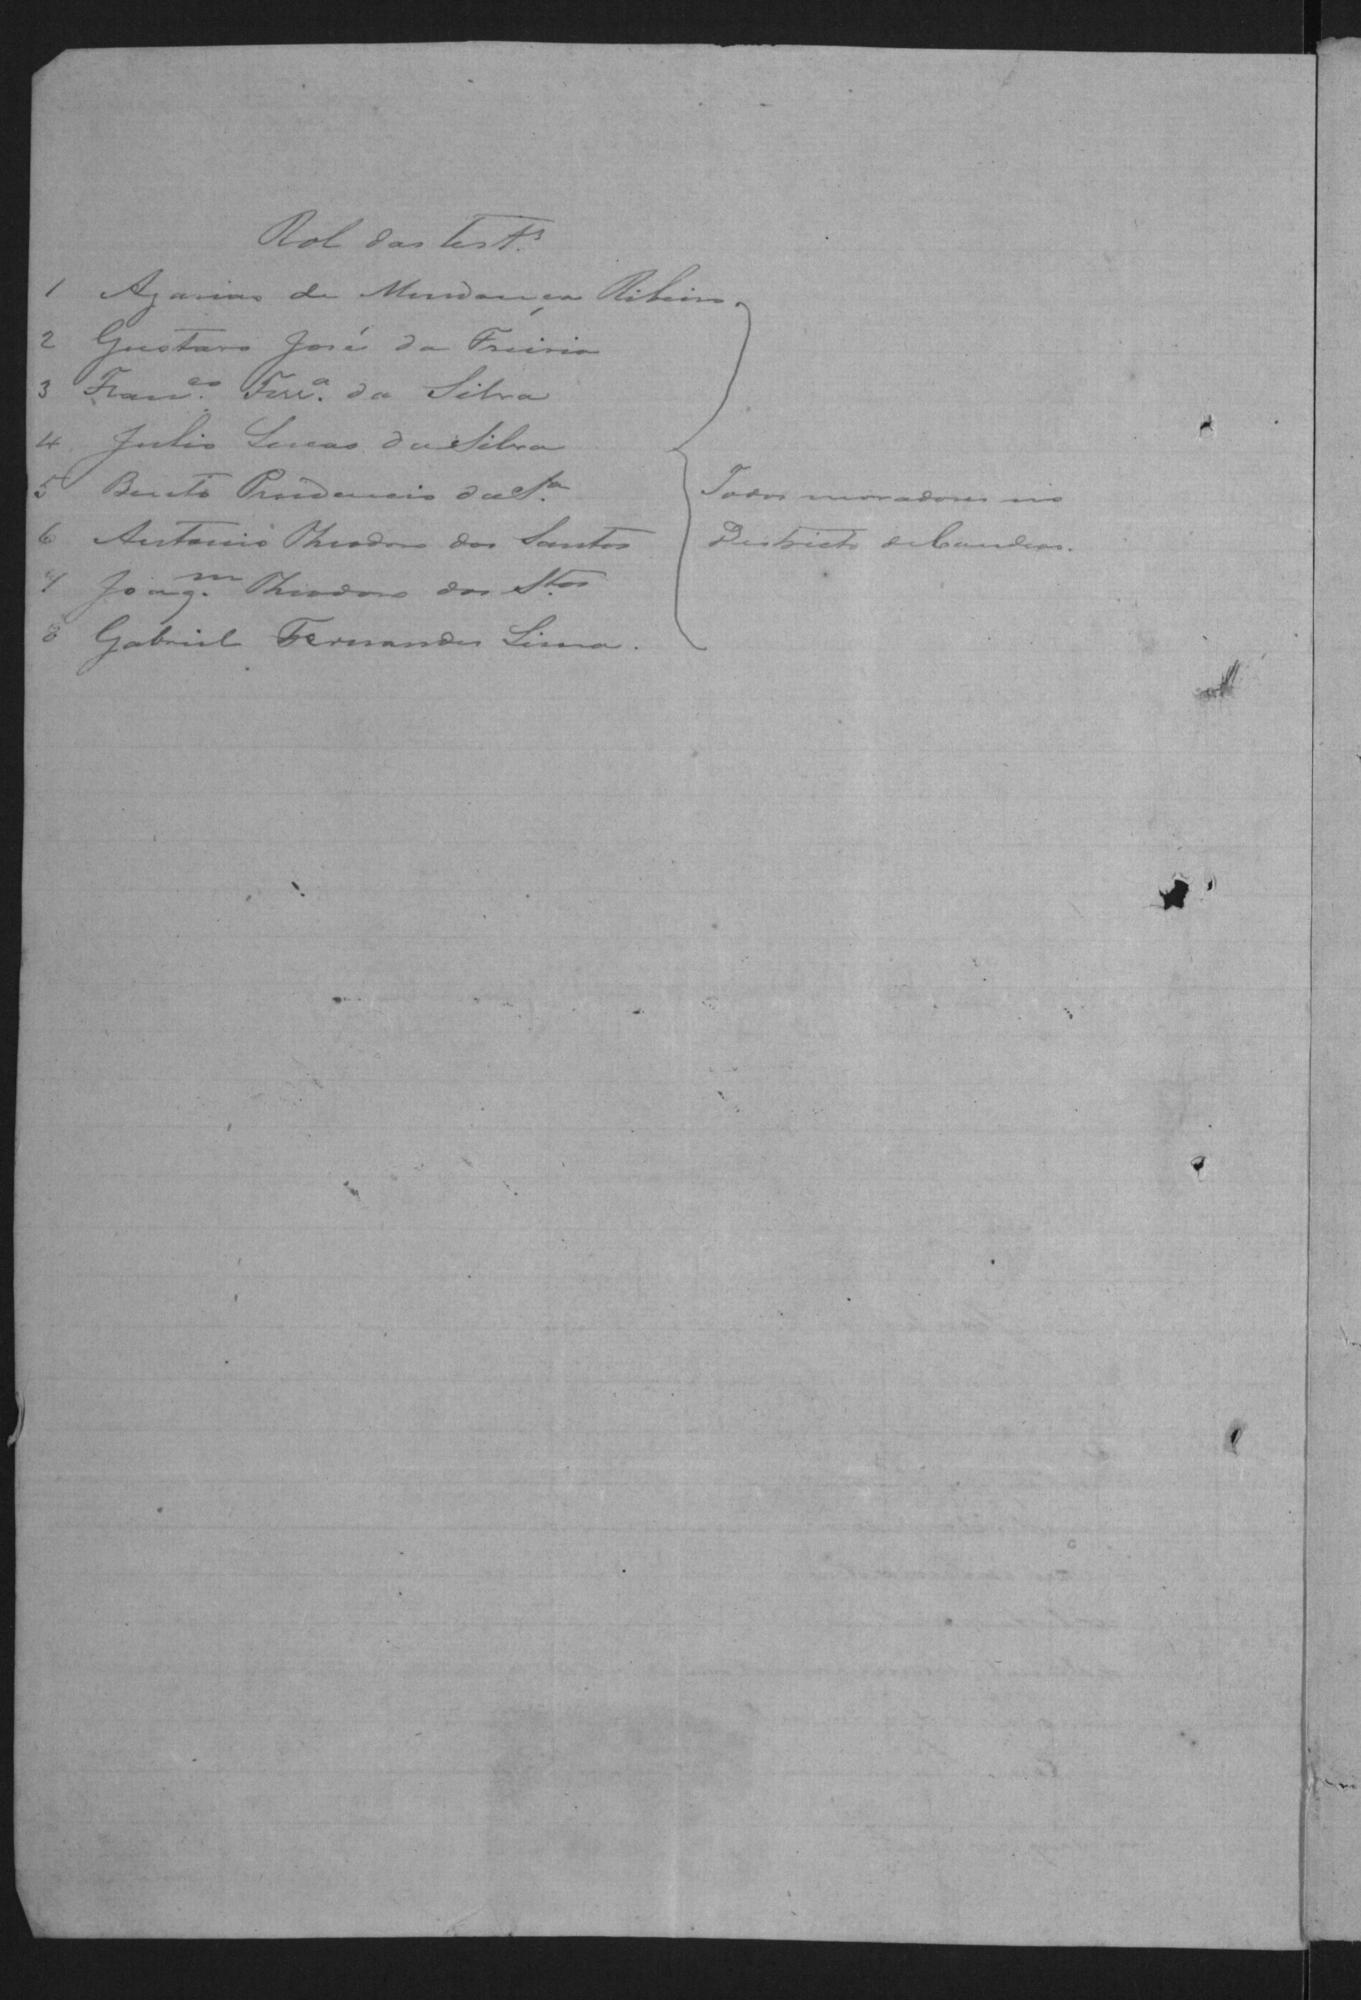 Rol das test.as
1 Azarias de Mendonça Ribeiro
2 Gustavo José da Freiria
3 Fran.co Ferr.a da Silva
4 Julio Lucas da Silva
5 Bento Prudencio da S.a
6 Antonio Theodoro dos Santos
7 Joaq.m Theodoro dos S.tos
8 Gabriel Fernandes Lima.
Todos moradores no
Districto de Candeas.